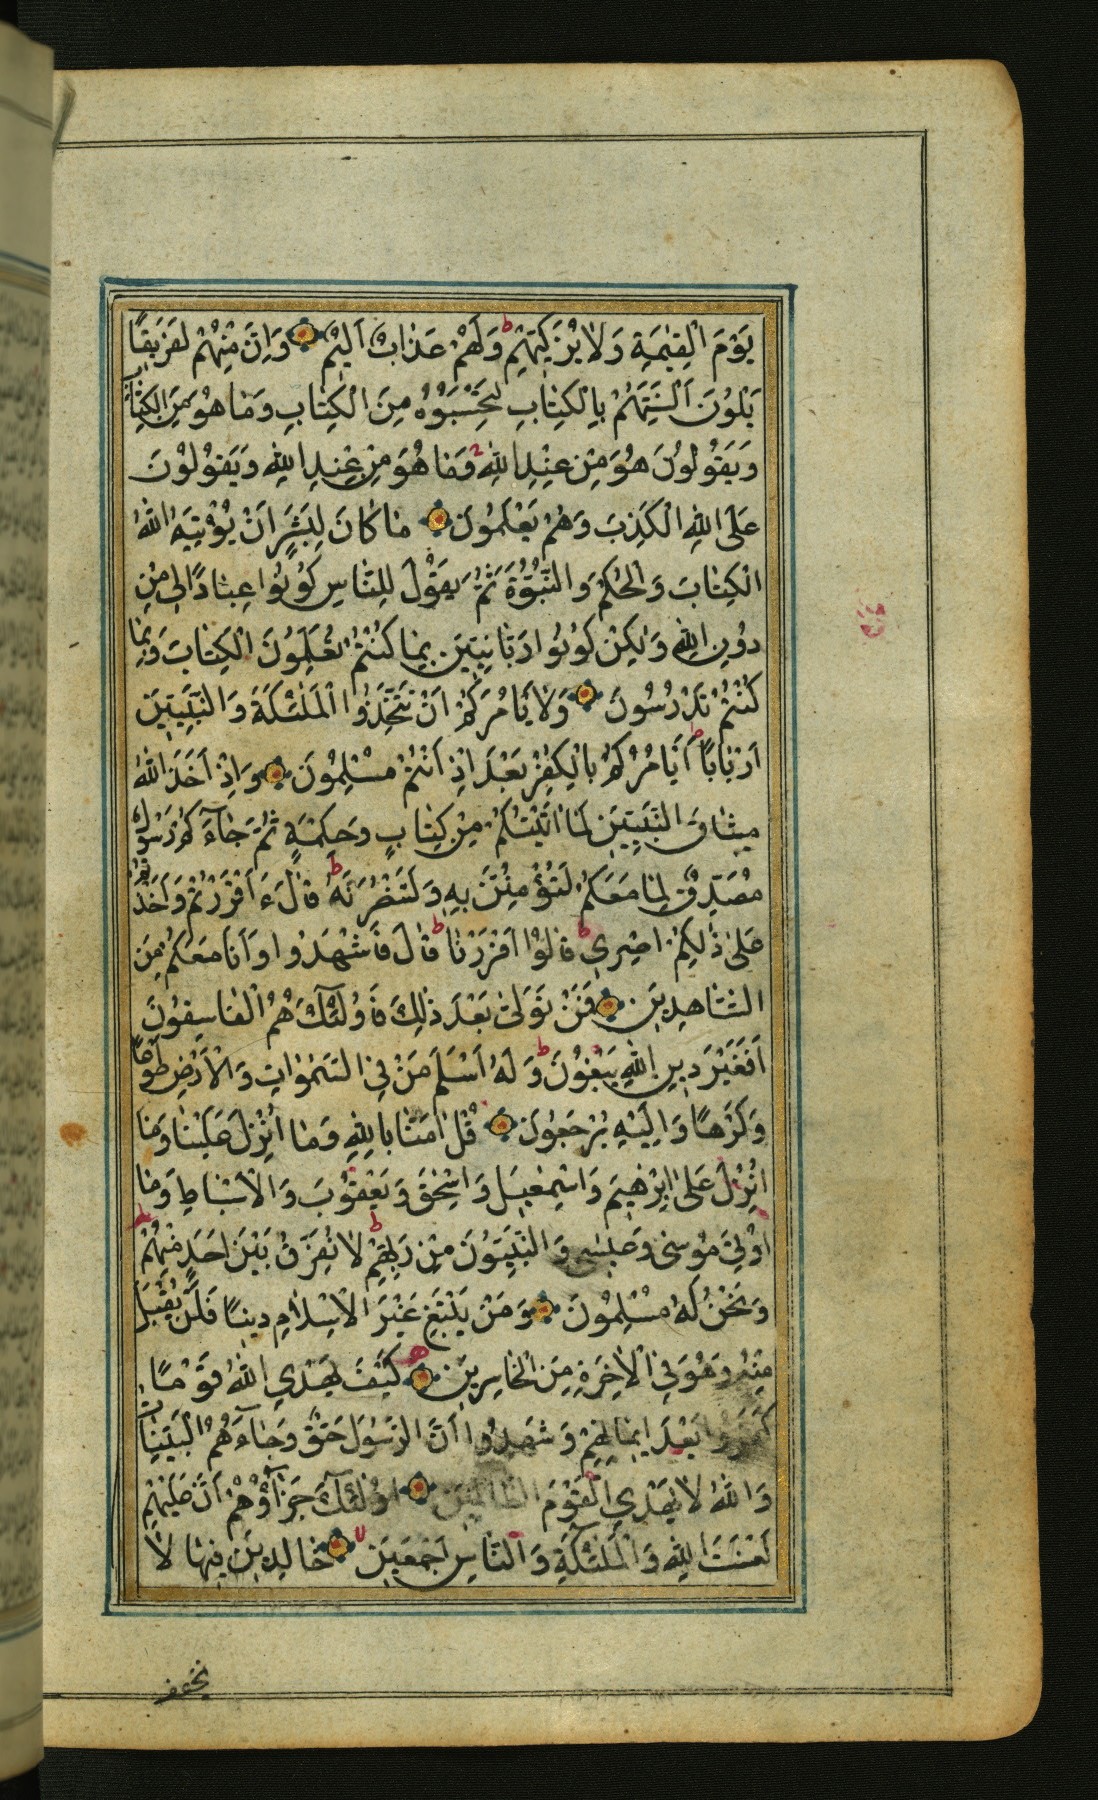 يَوْمَ الْقِيٰمَةِ وَلَا يُزَكِّيْهِمْ ط وَلَهُمْ عَذَابٌ اَلِيْمٌ وَاِنَّ مِنْهُمْ لَفَرِيْقًا
يَلْوُنَ اَلْسِنَتَهُمْ بِالْكِتَابِ لِتَحْسَبُوْهُ مِنَ الْكِتَابِ وَمَا هُوَ مِنَ الْكِتَابِ
وَيَقُوْلُوْنَ هُوَ مِنْ عِنْدِ اللهِ وَمَا هُوَ مِنْ عِنْدِ اللهِ وَيَقُوْلُوْنَ
عَلَى اللهِ الْكَذِبَ وَهُمْ يَعْلَمُوْنَ مَا كَانَ لِبَشَرٍ اَنْ يُؤْتِيَهُ اللهُ
الْكِتَابَ وَالْحُكْمَ وَالنُّبُوَّةَ ثُمَّ يَقُوْلَ لِلنَّاسِ كُوْنُوْا عِبَادًا لِىْ مِنْ
دُوْنِ اللهِ وَلٰكِنْ كُوْنُوْا رَبَّانِيِّيْنَ بِمَا كُنْتُمْ تُعَلِّمُوْنَ الْكِتَابَ وَبِمَا
كُنْتُمْ تَدْرُسُوْنَ وَلَا يَأْمُرَكُمْ اَنْ تَتَّخِذُوا الْمَلٰئِكَةَ وَالنَّبِيِّيْنَ
اَرْبَابًا ط اَيَأْمُرُكُمْ بِالْكُفْرِ بَعْدَ اِذْ اَنْتُمْ مُسْلِمُوْنَ وَاِذْ اَخَذَ اللهُ
مِيْثَاقَ النَّبِيِّيْنَ لَمَا اٰتَيْتُكُمْ مِنْ كِتَابٍ وَحِكْمَةٍ ثُمَّ جَآءَكُمْ رَسُوْلٌ
مُصَدِّقٌ لِمَا مَعَكُمْ لَتُؤْمِنُنَّ بِهِ وَلَتَنْصُرُنَّهُ ط قَالَ ءَاَقْرَرْتُمْ وَاَخَذْتُمْ
عَلٰى ذٰلِكُمْ اِصْرِىْ ط قَالُوْا اَقْرَرْنَا ط قَالَ فَاشْهَدُوْا وَاَنَا مَعَكُمْ مِنَ
الشَّاهِدِيْنَ فَمَنْ تَوَلّٰى بَعْدَ ذٰلِكَ فَاُولٰئِكَ هُمُ الْفَاسِقُوْنَ
اَفَغَيْرَ دِيْنِ اللهِ يَبْغُوْنَ ط وَلَهُ اَسْلَمَ مَنْ فِى السَّمٰوَاتِ وَالْاَرْضِ طَوْعًا
وَكَرْهًا وَاِلَيْهِ يُرْجَعُوْنَ قُلْ اٰمَنَّا بِاللهِ وَمَا اُنْزِلَ عَلَيْنَا وَمَا
اُنْزِلَ عَلٰى اِبْرٰهِيْمَ وَاِسْمٰعِيْلَ وَاِسْحٰقَ وَيَعْقُوْبَ وَالْاَسْبَاطِ وَمَا
اُوْتِىَ مُوْسٰى وَعِيْسٰى وَالنَّبِيُّوْنَ مِنْ رَبِّهِمْ ط لَا نُفَرِّقُ بَيْنَ اَحَدٍ مِنْهُمْ
وَنَحْنُ لَهُ مُسْلِمُوْنَ وَمَنْ يَبْتَغِ غَيْرَ الْاِسْلَامِ دِيْنًا فَلَنْ يُقْبَلَ
مِنْهُ وَهُوَ فِى الْاٰخِرَةِ مِنَ الْخَاسِرِيْنَ كَيْفَ يَهْدِى اللهُ قَوْمًا
كَفَرُوْا بَعْدَ اِيْمَانِهِمْ وَشَهِدُوْا اَنَّ الرَّسُوْلَ حَقٌّ وَجَآءَهُمُ الْبَيِّنَاتُ
وَاللهُ لَا يَهْدِى الْقَوْمَ الظَّالِمِيْنَ اُولٰئِكَ جَزَآؤُهُمْ اَنَّ عَلَيْهِمْ
لَعْنَتَ اللهِ وَالْمَلٰئِكَةِ وَالنَّاسِ اَجْمَعِيْنَ خَالِدِيْنَ فِيْهَا لَا
يخفف